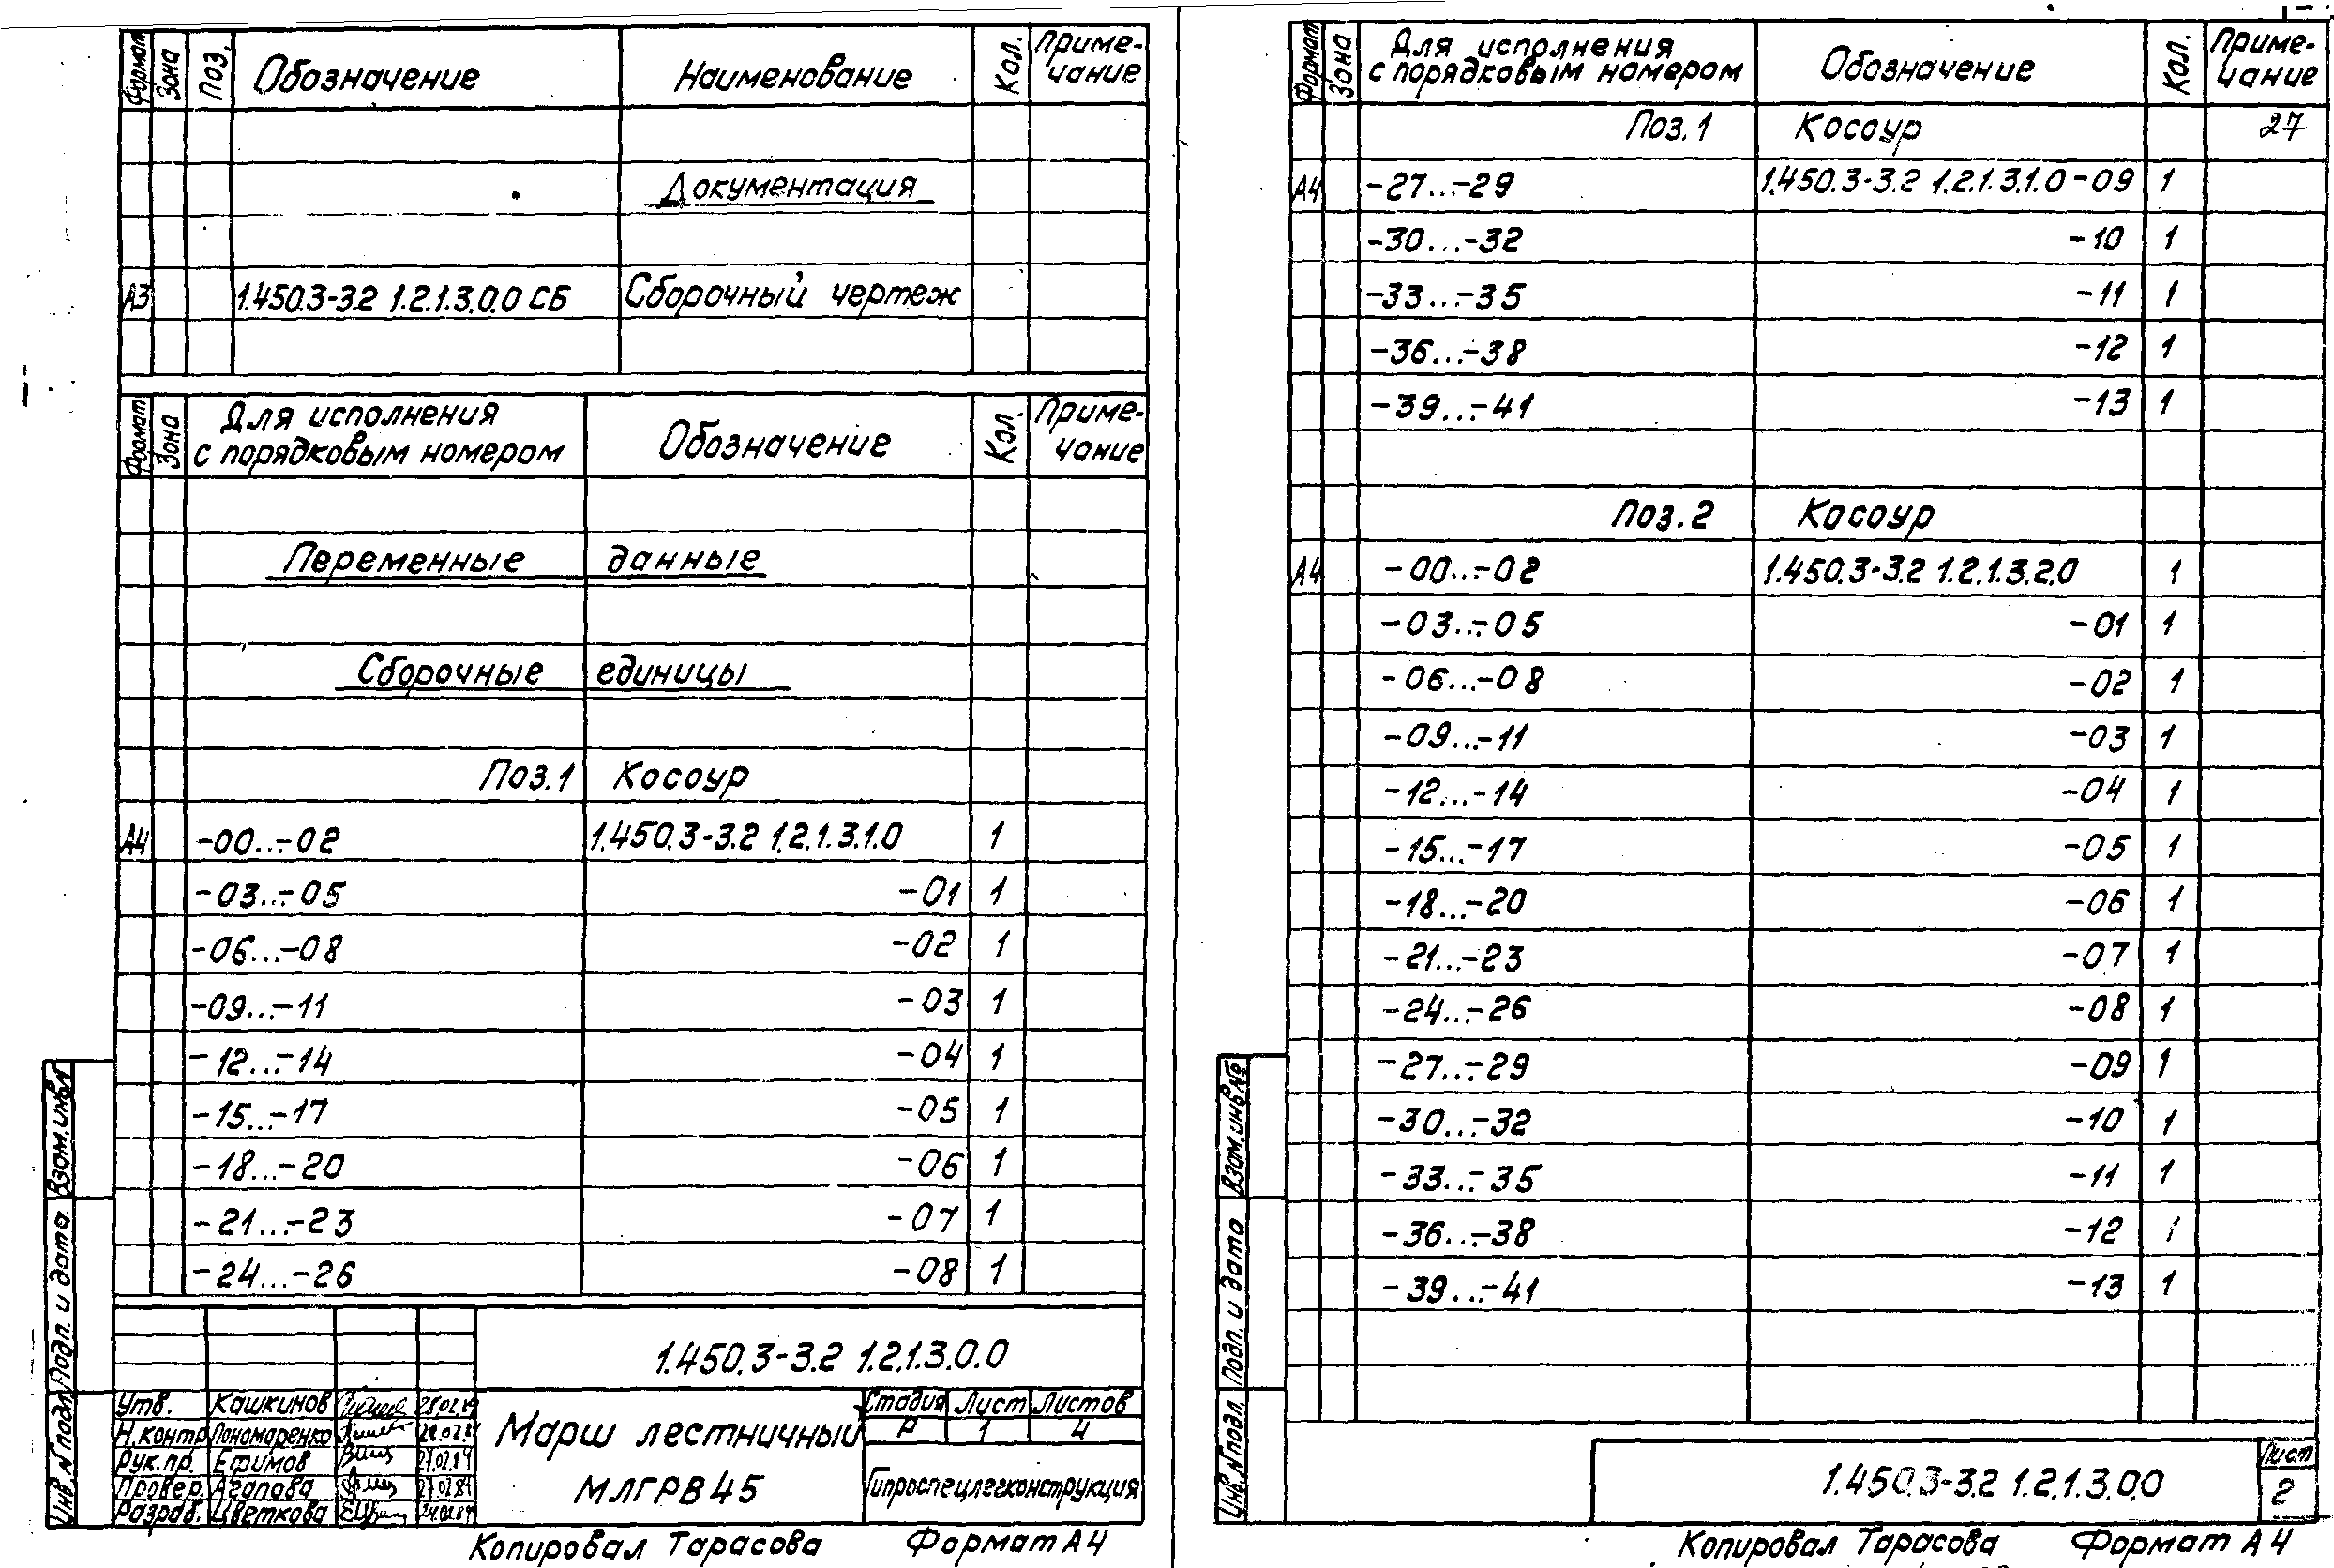 Формат Зона Поз. Обозначение Наименование Кол. Приме-
чание
Документация
А3 1.450.3-3.2 1.2.1.3.0.0 СБ Сборочный чертеж
Формат Зона Для исполнения
с порядковым номером Обозначение Кол. Приме-
чание
Переменные данные
Сборочные единицы
Поз.1 Косоур
А4 -00...-02 1.450.3-3.2 1.2.1.3.1.0 1
-03...-05 -01 1
-06...-08 -02 1
-09...-11 -03 1
-12...-14 -04 1
-15...-17 -05 1
-18...-20 -06 1
-21...-23 -07 1
-24...-26 -08 1
Взам.инв.№
Подп. и дата.
Инв.№подл.
1.450.3-3.2 1.2.1.3.0.0
Утв. Кашкинов 28.02.84
Н.контр. Пономаренко
Рук.пр. Ефимов 27.02.84
Провер. Агапова 27.02.84
Разраб. Цветкова
Марш лестничный
МЛГРВ45
Стадия Лист Листов
Р 1 4
Гипроспецлегконструкция
Копировал Тарасова Формат А4
Формат Зона Для исполнения
с порядковым номером Обозначение Кол. Приме-
чание
Поз.1 Косоур 27
А4 -27...-29 1.450.3-3.2 1.2.1.3.1.0-09 1
-30...-32 -10 1
-33...-35 -11 1
-36...-38 -12 1
-39...-41 -13 1
Поз.2 Косоур
А4 -00...-02 1.450.3-3.2 1.2.1.3.2.0 1
-03...-05 -01 1
-06...-08 -02 1
-09...-11 -03 1
-12...-14 -04 1
-15...-17 -05 1
-18...-20 -06 1
-21...-23 -07 1
-24...-26 -08 1
-27...-29 -09 1
-30...-32 -10 1
-33...-35 -11 1
-36...-38 -12 1
-39...-41 -13 1
Взам.инв.№
Подп. и дата
Инв.№подл.
1.450.3-3.2 1.2.1.3.0.0
Лист
2
Копировал Тарасова Формат А4